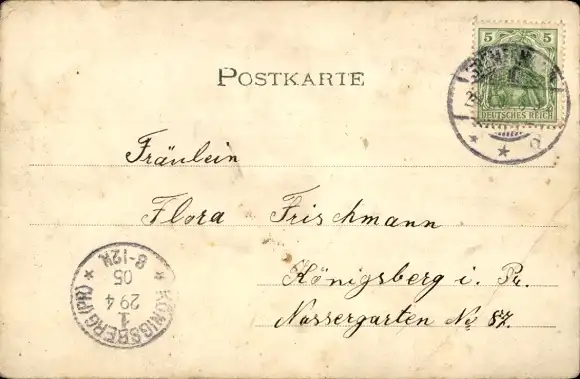 POSTKARTE
5 5
DEUTSCHES REICH
Fräulein
Flora Frischmann
Königsberg i. Pr.
Nassergarten No 87.
KÖNIGSBERG (PR)
1
29 4
05
8-12V.